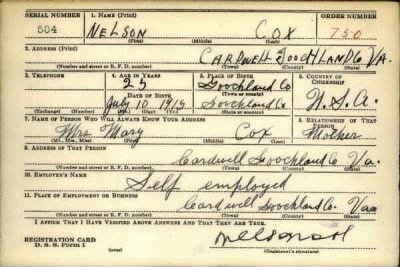 SERIAL NUMBER 1. NAME (Print) ORDER NUMBER
504 NELSON COX 750
(First) (Middle) (Last)
2. ADDRESS (Print)
CARDWELL GOOCHLAND Co VA.
(Number and street or R. F. D. number) (Town) (County) (State)
3. TELEPHONE 4. AGE IN YEARS 5. PLACE OF BIRTH 6. COUNTRY OF CITIZENSHIP
25 Goochland Co
DATE OF BIRTH (Town or county)
July 10 1915 Goochland Co U.S.A.
(Exchange) (Number) (Mo.) (Day) (Yr.) (State or country)
7. NAME OF PERSON WHO WILL ALWAYS KNOW YOUR ADDRESS 8. RELATIONSHIP OF THAT PERSON
Mrs Mary Cox Mother
(Mr., Mrs., Miss) (First) (Middle) (Last)
9. ADDRESS OF THAT PERSON
Cardwell Goochland Co Va.
(Number and street or R. F. D. number) (Town) (County) (State)
10. EMPLOYER'S NAME
Self employed
11. PLACE OF EMPLOYMENT OR BUSINESS
Cardwell Goochland Co. Va
(Number and street or R. F. D. number) (Town) (County) (State)
I AFFIRM THAT I HAVE VERIFIED ABOVE ANSWERS AND THAT THEY ARE TRUE.
REGISTRATION CARD
D. S. S. Form 1 (Registrant's signature)